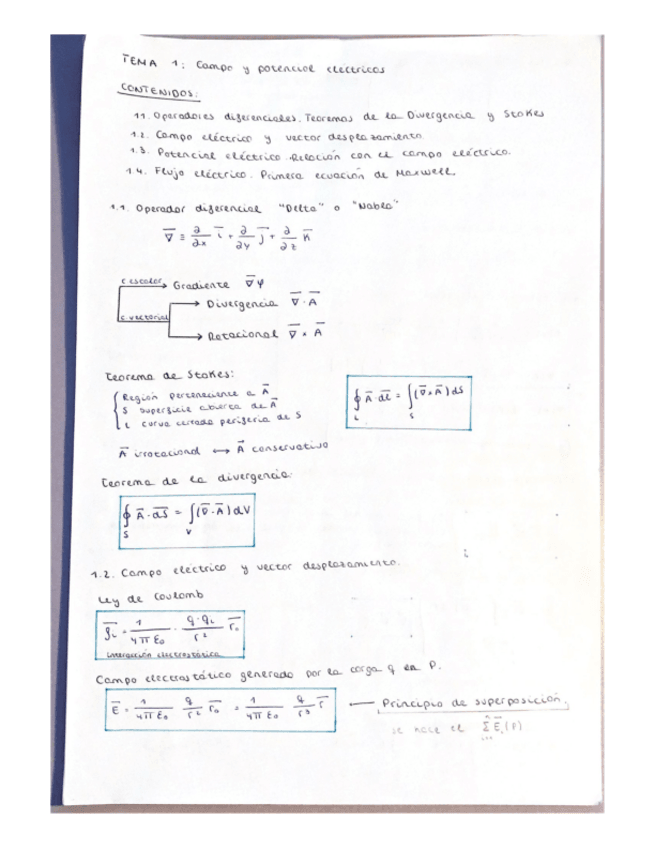 TEMA 1: Campo y potencial electricos
CONTENIDOS:
1.1. Operadores diferenciales. Teoremas de la Divergencia y Stokes
1.2. Campo eléctrico y vector desplazamiento.
1.3. Potencial eléctrico. Relación con el campo eléctrico.
1.4. Flujo eléctrico. Primera ecuación de Maxwell.
1.1. Operador diferencial "Delta" o "Nabla"
∇̄ ≡ ∂/∂x i̅ + ∂/∂y j̅ + ∂/∂z k̅
C escalar → Gradiente ∇̄φ
C. vectorial → Divergencia ∇̄ · A̅
→ Rotacional ∇̄ × A̅
Teorema de Stokes:
Región perteneciente a A̅
S superficie abierta de A̅
L curva cerrada periferia de S
∮_L A̅ · dl̅ = ∫_S (∇̄×A̅) dS
A̅ irrotacional ↔ A̅ conservativo
Teorema de la divergencia:
∮_S A̅ · dS̅ = ∫_V (∇̄ · A̅) dV
1.2. Campo eléctrico y vector desplazamiento.
Ley de Coulomb
f̅i = 1/4πε₀ · q·qi/r² r̅₀
Interacción electrostática
Campo electrostático generado por la carga q en P.
E̅ = 1/4πε₀ q/r² r̅₀ = 1/4πε₀ q/r³ r̅ ← Principio de superposición,
se hace el Σ E̅i(P)